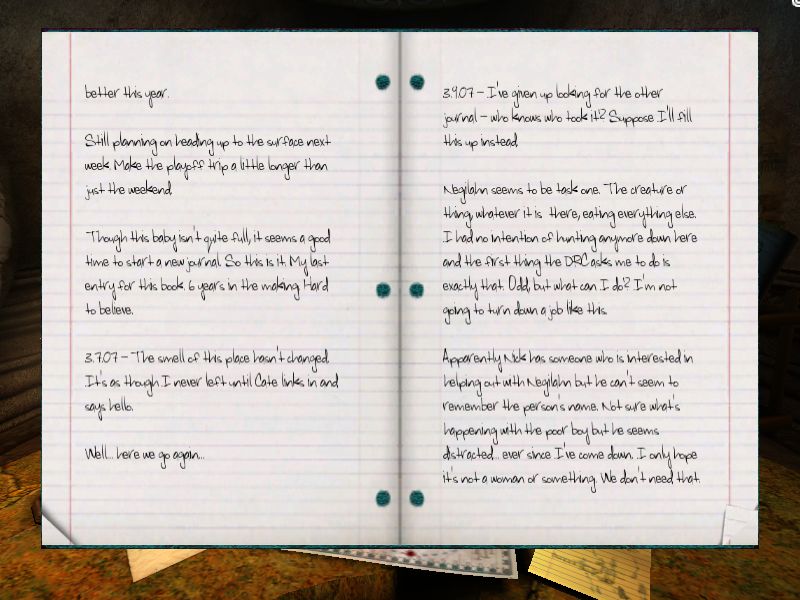 better this year.
Still planning on heading up to the surface next
week. Make the playoff trip a little longer than
just the weekend.
Though this baby isn't quite full, it seems a good
time to start a new journal. So this is it. My last
entry for this book. 6 years in the making. Hard
to believe.
3.7.07 - The smell of this place hasn't changed.
It's as though I never left until Cate links in and
says hello.
Well... here we go again...
3.9.07 - I've given up looking for the other
journal - who knows who took it? Suppose I'll fill
this up instead.
Negilahn seems to be task one. The creature or
thing, whatever it is there, eating everything else.
I had no intention of hunting anymore down here
and the first thing the DRC asks me to do is
exactly that. Odd, but what can I do? I'm not
going to turn down a job like this.
Apparently Nick has someone who is interested in
helping out with Negilahn but he can't seem to
remember the person's name. Not sure what's
happening with the poor boy but he seems
distracted... ever since I've come down. I only hope
it's not a woman or something. We don't need that.